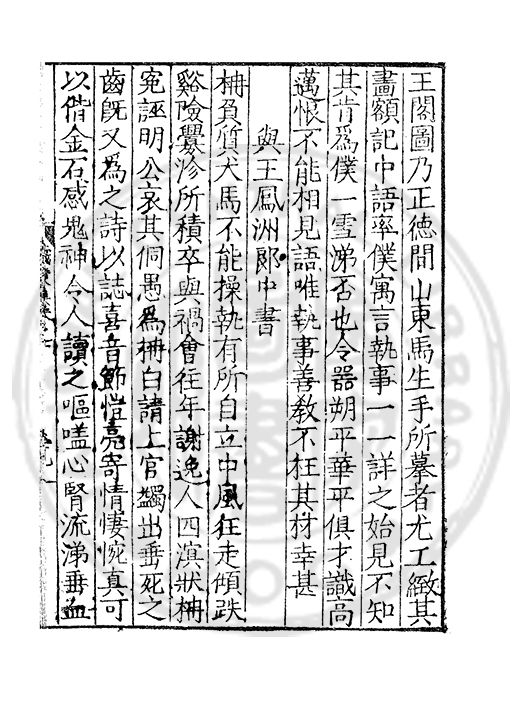 王閣圖乃正德間山東馬生手所摹者尤工緻其
畵額記中語率僕寓言執事一一詳之始見不知
其肯爲僕一雪涕否也令器朔平華平俱才識高
邁恨不能相見語唯執事善敎不枉其材幸甚
與王鳳洲郞中書
柟負質犬馬不能操執有所自立中風狂走傾跌
谿險釁沴所積卒與禍會往年謝逸人四溟狀柟
寃誣明公哀其侗愚爲柟白請上官蠲出垂死之
齒旣又爲之詩以誌喜音節愷亮寄情悽惋真可
以偕金石感鬼神令人讀之嘔嗑心腎流涕垂血